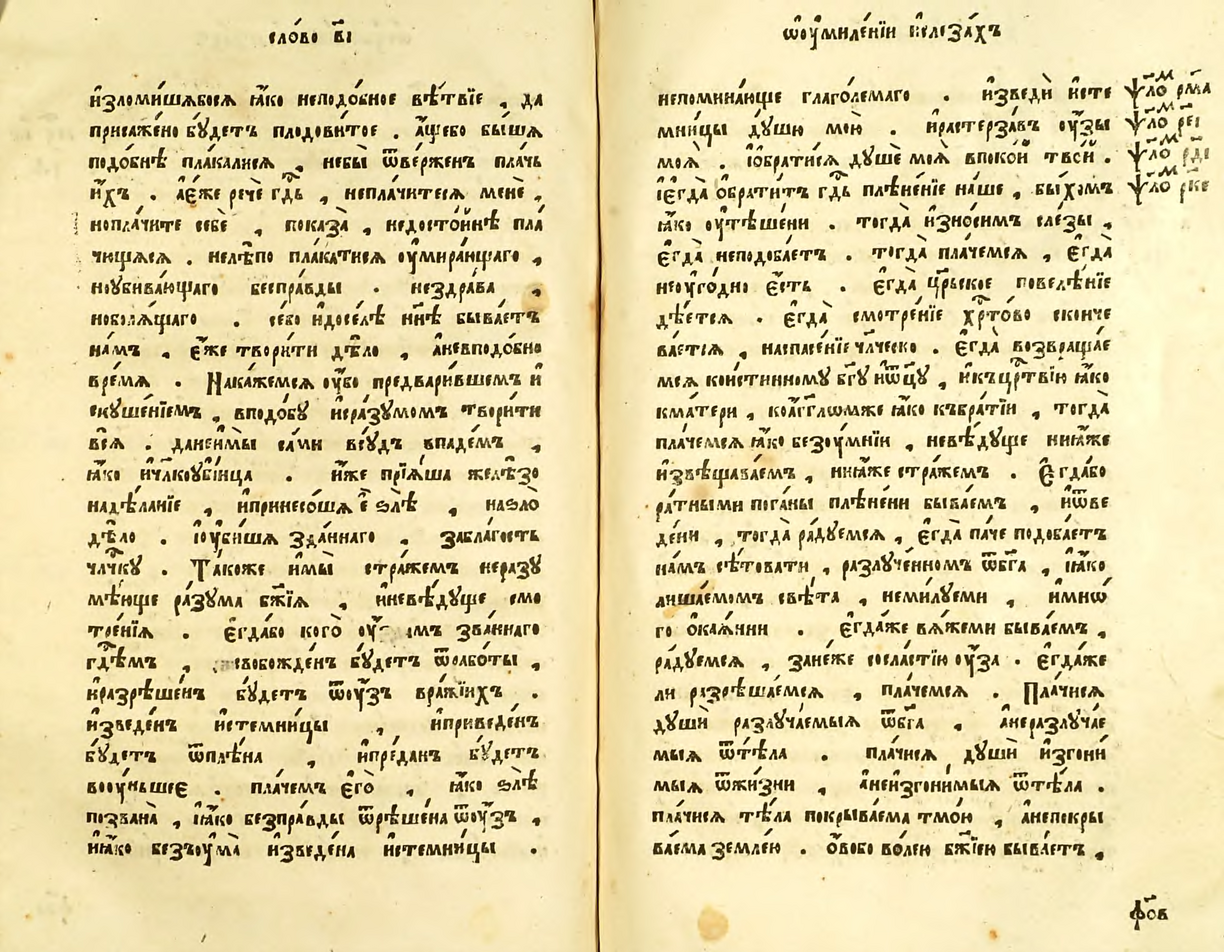 сло́во в҃і
и҆зломи́шѧвсѧ ꙗ҆́ко неподо́бное вѣ́твїе , да
присажено̀ бу́детъ плодови́тое . а҆́щебо бы́шѧ
подо́бнѣ пла́калисѧ , небы̀ ѿве́рженъ пла́чь
и҆́хъ . а҆є҆́же речѐ гд҇ь , непла́читесѧ менѐ ,
нопла́чите себѐ , показа̀ , недосто́йнѣ пла́
чющѧсѧ . нелѣ́по пла́катисѧ ѹ҆мира́ющаго ,
ноубива́ющаго беспра́вды . нездра́ва ,
ноболѧ́щаго . се́бо и҆досе́лѣ нн҃ѣ быва́етъ
на́мъ , є҆́же твори́ти дѣ́ло , а҆невподо́бно
вре́мѧ . Нака́жемсѧ ѹ҆́бо предвари́вшемъ и҆
скуше́нїемъ , вподо́бу и҆ра́зумомъ твори́ти
всѧ̀ . данеи҆мы̀ са́ми всу́дъ впаде́мъ ,
ꙗ҆́ко и҆чл҃коуби́нца . и҆́же прїѧ́ша желѣ́зо
надѣ́ланїе , и҆принесо́шѧ є҆̀ ѕлѣ̀ , наѕло̀
дѣ́ло . і҆ѹ҆би́шѧ зда́ннаго , забла́гость
чл҃чку . Та́коже и҆мы̀ стра́жемъ неразу
мѣ́юще ра́зума бж҃їѧ , и҆невѣ́дуще смо
тре́нїѧ . є҆гда́бо кого̀ зва́ннаго
гд҇емъ , свобожде́нъ бу́детъ ѿрабо́ты ,
и҆разрѣше́нъ бу́детъ ѿѹ҆́зъ вра́жїихъ .
и҆зведе́нъ и҆стемни́цы , и҆приведе́нъ
бу́детъ ѿплѣ́на , и҆пре́данъ бу́детъ
воѹ҆́ньшее . пла́чемъ є҆го̀ , ꙗ҆́ко ѕлѣ̀
позва́на , і҆ꙗ҆́ко безпра́вды ѿрѣше́на ѿѹ҆́зъ ,
и҆ꙗ҆́ко безъѹ҆ма̀ и҆зведе́на и҆стемни́цы .
ѡ҆ѹ҆миле́нїи и҆слеза́хъ
непомина́юще глаго́лемаго . и҆зведѝ и҆сте
мни́цы ду́шю мою̀ . и҆растерза́въ ѹ҆́зы
моѧ̀ . і҆ѡ҆брати́сѧ ду́ше моѧ̀ впоко́й тво́й .
і҆є҆гда̀ ѡ҆брати́тъ гд҇ь плѣне́нїе на́ше , бы́хомъ
ꙗ҆́ко ѹ҆тѣ́шени . тогда̀ и҆зно́симъ сле́зы ,
є҆гда̀ неподоба́етъ . тогда̀ пла́чемсѧ , є҆гда̀
неѹ҆го́дно є҆́сть . є҆гда̀ цр҇ьское повелѣ́нїе
дѣ́етсѧ . є҆гда̀ смотре́нїе хр҇то́во сконче
ва́етсѧ , наспасе́нїе чл҃ческо . є҆гда̀ возвраща́е
мсѧ кои҆́стинному бг҃у и҆ѻ҆ц҃у , и҆къцр҇твїю ꙗ҆́ко
кма́тери , коа҆́гг҃лѡмже ꙗ҆́ко къбра́тїи , тогда̀
пла́чемсѧ ꙗ҆́ко безѹ҆́мнїи , невѣ́дуще ниꙗ҆́же
и҆звѣщава́емъ , ниꙗ҆́же стра́жемъ . Є҆гда́бо
ра́тными пога́ны плѣне́ни быва́емъ , и҆ѿве
де́ни , тогда̀ ра́дуемсѧ , є҆гда̀ па́че подоба́етъ
на́мъ сѣ́товати , разлуче́нномъ ѿбг҃а , і҆ꙗ҆́ко
лиша́емомъ свѣ́та , неми́луеми , и҆мно́
го ѻ҆каѧ́нни . є҆гда́же вѧ́жеми быва́емъ ,
ра́дуемсѧ , зане́же сосла́стїю ѹ҆́за . є҆гда́же
ли разрѣша́емсѧ , пла́чемсѧ . Пла́чисѧ
душѝ разлуча́емыѧ ѿбг҃а , а҆неразлуча́е
мыѧ ѿтѣ́ла . пла́чисѧ душѝ и҆згони́
мыѧ ѿжи́зни , а҆неи҆згони́мыѧ ѿтѣ́ла .
пла́чисѧ тѣ́ла покрыва́ема тмо́ю , а҆непокры
ва́ема земле́ю . ѻ҆во́бо во́лею бж҃їею быва́етъ ,
ѱло́м рма
ѱло́м реі
ѱло́м рді
ѱло́м рке
фо҃в